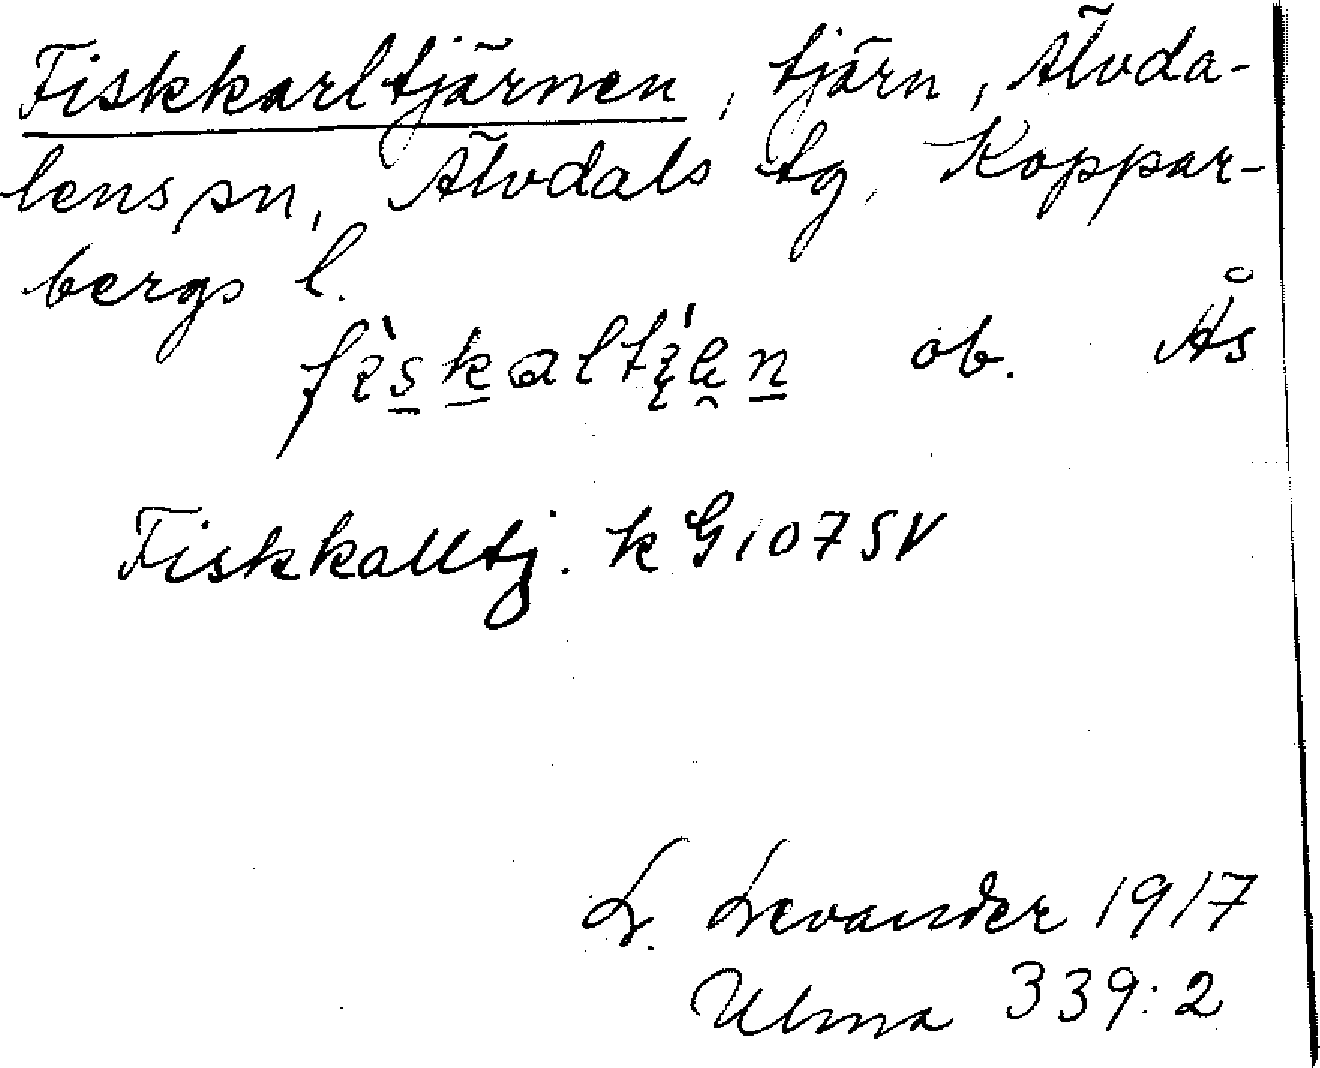 Fiskkarltjärnen, tjärn, Älvda-
lens sn, Älvdals tg, Koppar-
bergs l.
ob. Ås
Fiskkalltj. k G 107 SV
L. Levander 1917
Ulma 339:2